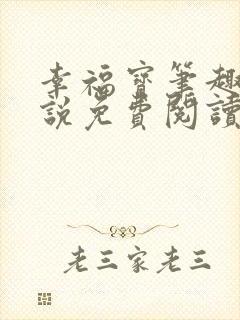 幸福寶筆趣
說免費閱讀
老三家老三